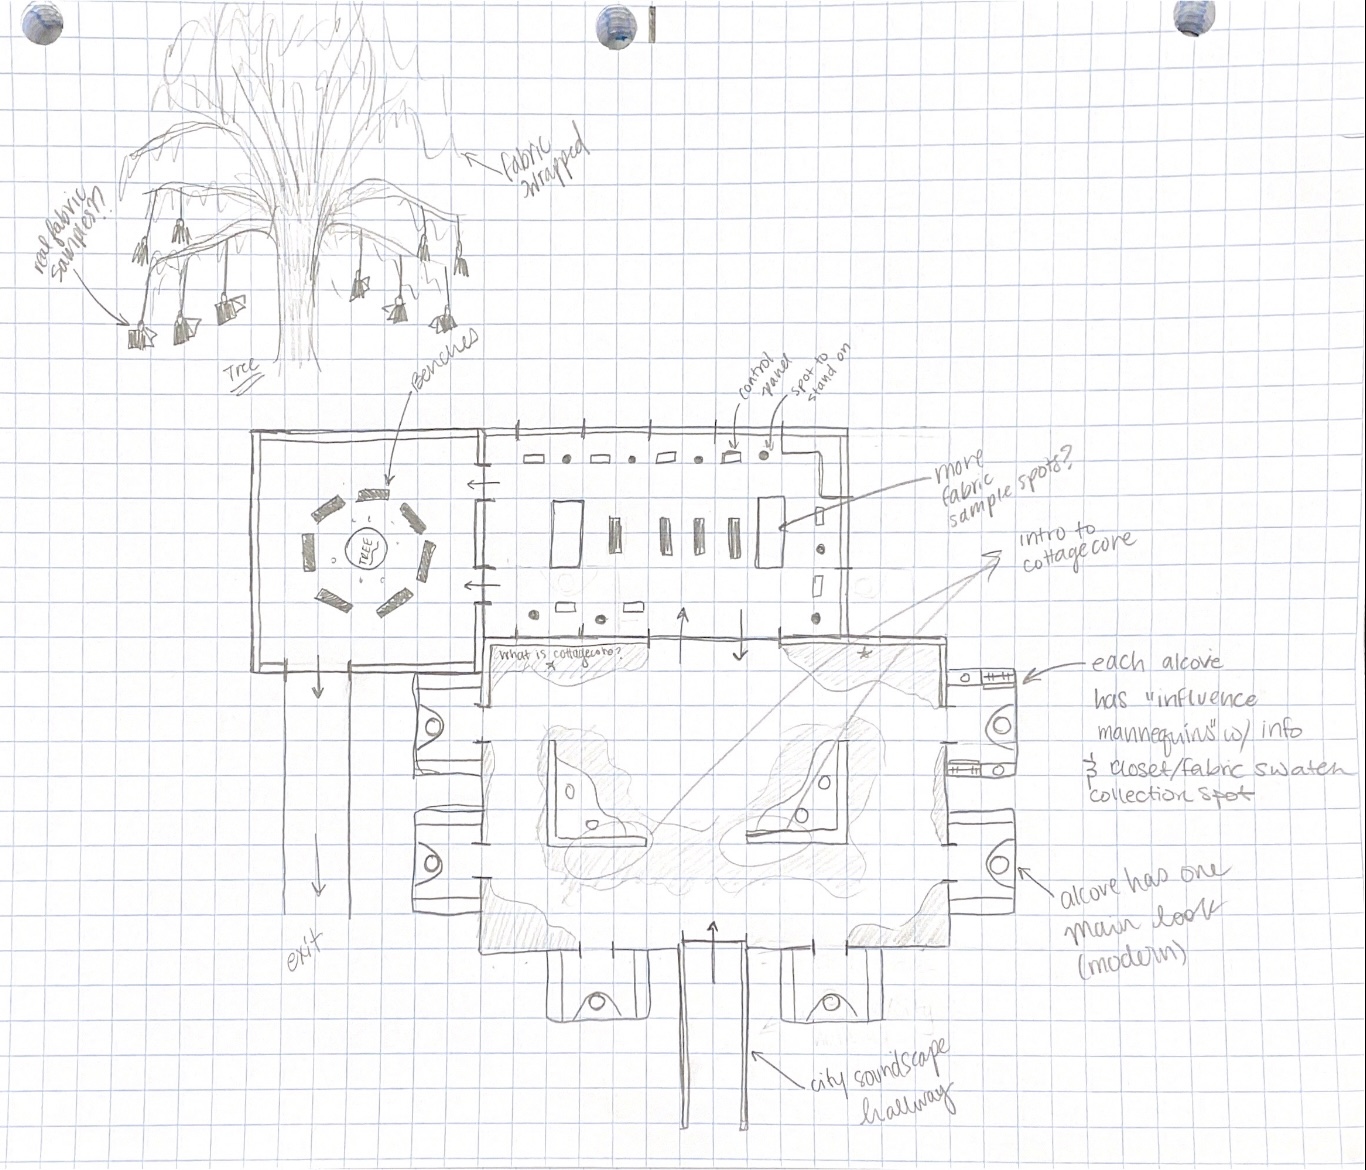 fabric
wrapped
real fabric
samples?!
Tree
Benches
control
panel
spot to
stand on
more
fabric
sample spots?
intro to
cottagecore
TREE
what is cottagecore?
each alcove
has "influence
mannequins" w/ info
& closet/fabric swatch
collection spot
alcove has one
main look
(modern)
exit
city soundscape
hallway